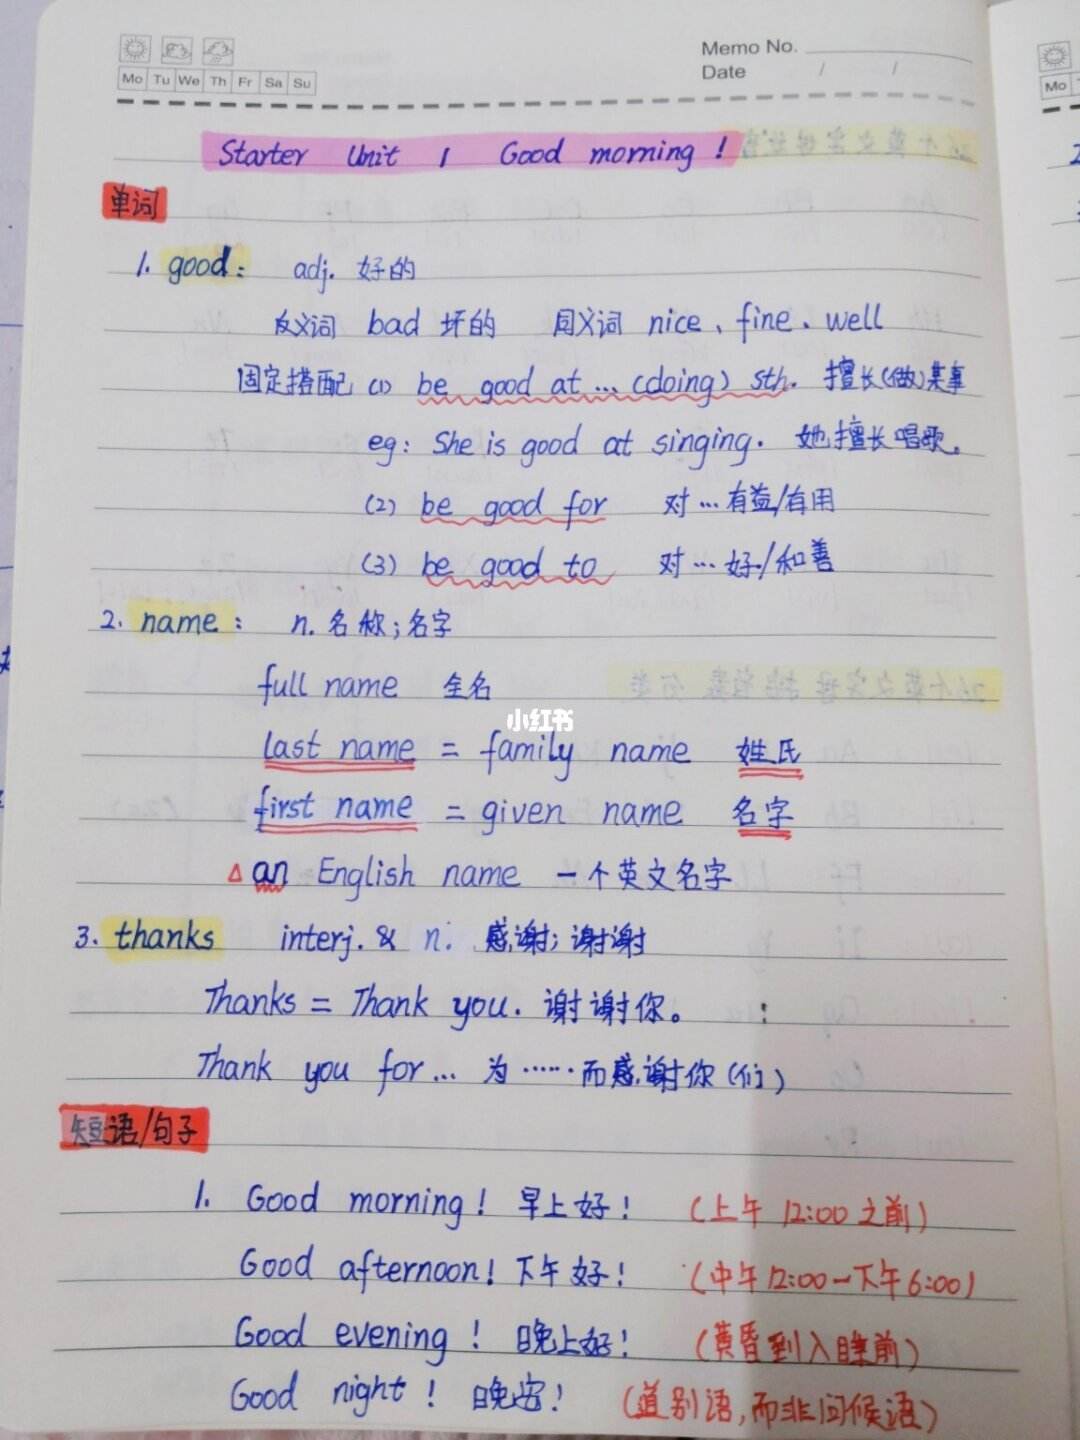 Memo No.
Mo Tu We Th Fr Sa Su
Date / /
Mo
Starter Unit 1 Good morning!
单词
1. good: adj. 好的
反义词 bad 坏的 同义词 nice、fine、well
固定搭配 (1) be good at ... (doing) sth. 擅长(做)某事
eg: She is good at singing. 她擅长唱歌。
(2) be good for 对…有益/有用
(3) be good to 对…好/和善
2. name: n. 名称;名字
full name 全名
小红书
last name = family name 姓氏
first name = given name 名字
△ an English name 一个英文名字
3. thanks interj. & n. 感谢;谢谢
Thanks = Thank you. 谢谢你。
Thank you for... 为……而感谢你(们)
短语/句子
1. Good morning! 早上好! (上午12:00之前)
Good afternoon! 下午好! (中午12:00-下午6:00)
Good evening! 晚上好! (黄昏到入睡前)
Good night! 晚安! (道别语,而非问候语)